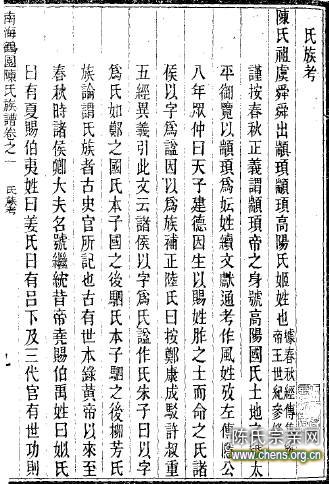 氏族考
陳氏祖虞舜舜出顓頊顓頊高陽氏姬姓也據春秋經傳集
帝王世紀參修
謹按春秋正義謂顓頊帝之身號高陽國氏土地之
太
平御覽以顓頊為妘姓續文獻通考作風姓攷左傳隱公
八年眾仲曰天子建德因生以賜姓胙之土而命之氏諸
侯以字為諡因以為族補正陸氏曰按鄭康成駁許叔重
五經異義引此文云諸侯以字為氏諡作氏朱子曰以字
為氏如鄭之國氏本子國之後駟氏本子駟之後柳芳氏
族論謂氏族者古史官所記也古有世本錄黃帝以來至
春秋時諸侯卿大夫名號繼統昔帝堯賜伯禹姓曰姒氏
曰有夏賜伯夷姓曰姜氏曰有呂下及三代官有世功則
南海鶴園陳氏族譜卷之一
氏族考
陈氏宗亲网
www.chens.org.cn